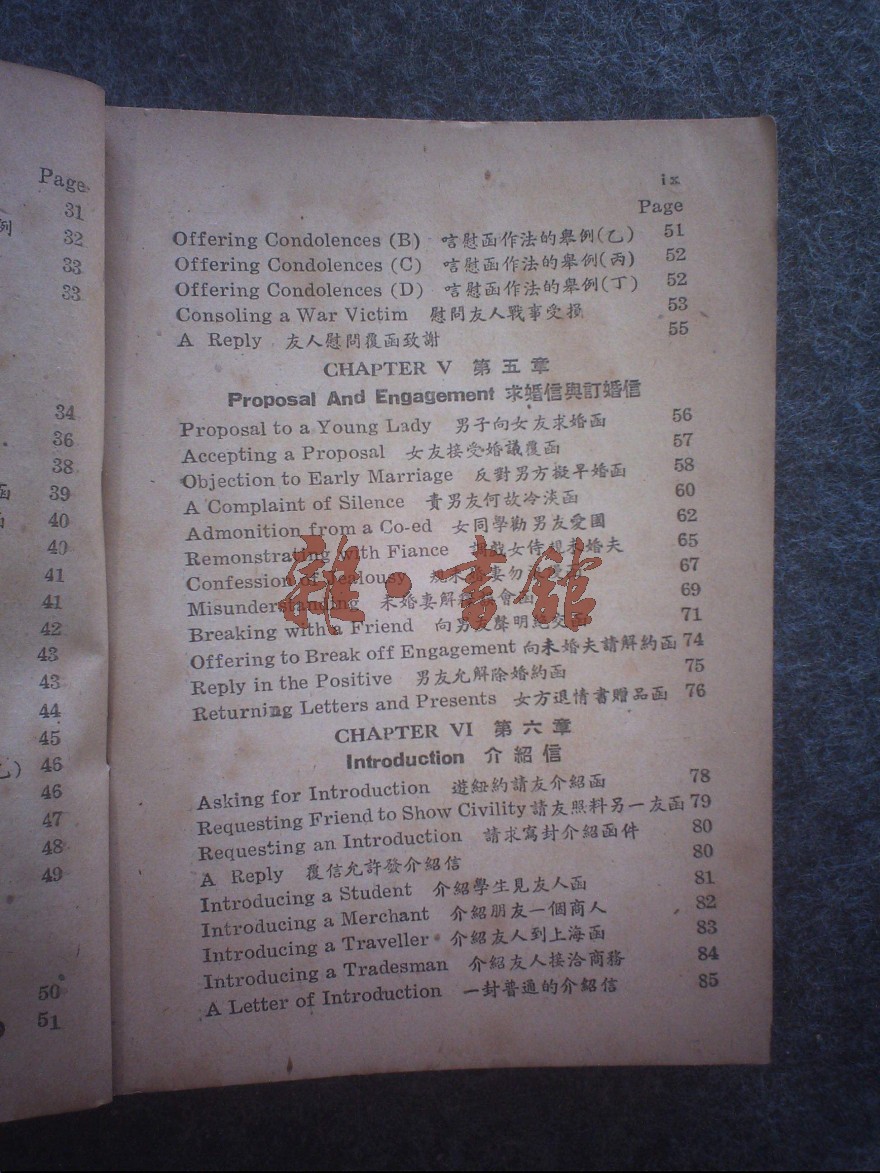 Page
31
例
32
33
33
34
36
38
函 39
40
40
41
41
42
43
43
44
45
乙) 46
46
47
48
49
50
51
ix
Page
Offering Condolences (B) 唁慰函作法的舉例(乙) 51
Offering Condolences (C) 唁慰函作法的舉例(丙) 52
Offering Condolences (D) 唁慰函作法的舉例(丁) 52
Consoling a War Victim 慰問友人戰事受損 53
A Reply 友人慰問覆函致謝 55
CHAPTER V 第五章
Proposal And Engagement 求婚信與訂婚信
Proposal to a Young Lady 男子向女友求婚函 56
Accepting a Proposal 女友接受婚議覆函 57
Objection to Early Marriage 反對男方擬早婚函 58
A Complaint of Silence 責男友何故冷淡函 60
Admonition from a Co-ed 女同學勸男友愛國 62
Remonstrating with Fiance 調戲女侍規未婚夫 65
Confession of Jealousy 未婚妻勿 67
Misunderstanding 未婚妻解釋誤會函 69
Breaking with a Friend 向男友聲明絕交函 71
Offering to Break off Engagement 向未婚夫請解約函 74
Reply in the Positive 男友允解除婚約函 75
Returning Letters and Presents 女方退情書贈品函 76
CHAPTER VI 第六章
Introduction 介紹信
Asking for Introduction 遊紐約請友介紹函 78
Requesting Friend to Show Civility 請友照料另一友函 79
Requesting an Introduction 請求寫封介紹函件 80
A Reply 覆信允許發介紹信 80
Introducing a Student 介紹學生見友人函 81
Introducing a Merchant 介紹朋友一個商人 82
Introducing a Traveller 介紹友人到上海函 83
Introducing a Tradesman 介紹友人接洽商務 84
A Letter of Introduction 一封普通的介紹信 85
雜·書館